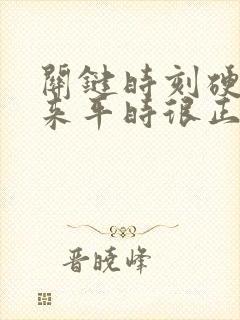 關鍵時刻硬
来平時很正
晋曉峰